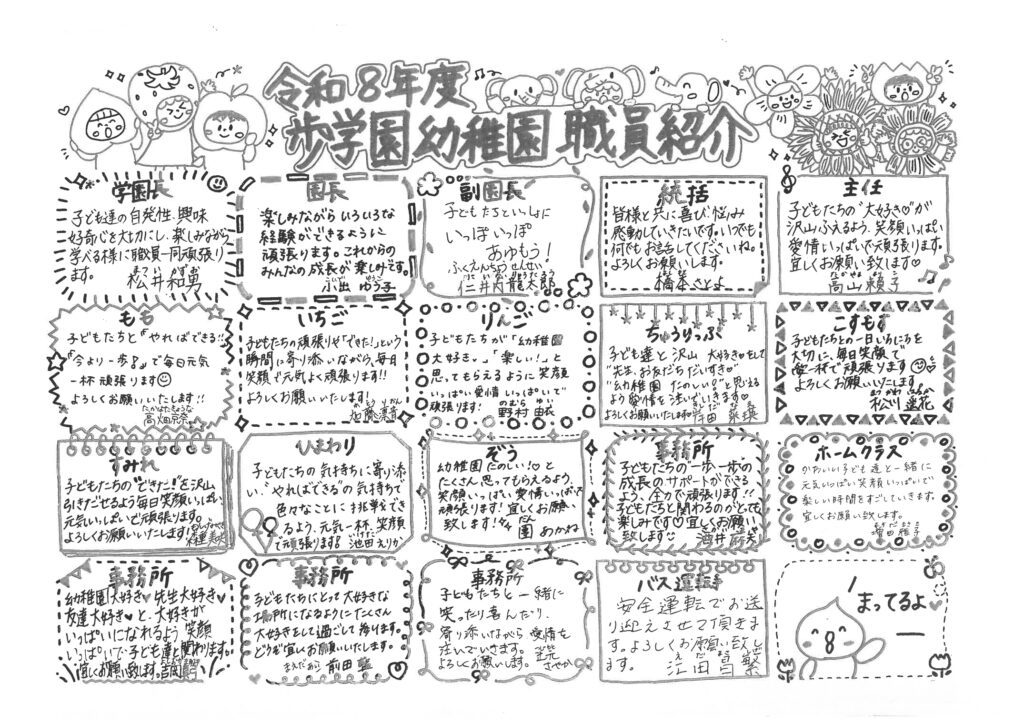 令和8年度
歩学園幼稚園 職員紹介
学園長
子ども達の自発性、興味
好奇心を大切にし、楽しみながら
学べる様に職員一同頑張り
ます。
まつい かずお
松井和男
園長
楽しみながら いろいろな
経験ができるように
頑張ります。これからの
みんなの成長が楽しみです。
小出 ゆう子
副園長
子どもたちといっしょに
いっぽいっぽ
あゆもう!
ふくえんちょうせんせい
仁井内龍太郎
統括
皆様と共に喜び、悩み
感動していきたいです。いつでも
何でもお話してくださいね。
よろしくお願いします。
橋本さとよ
主任
子どもたちの“大好き♡”が
沢山ふえるよう、笑顔いっぱい
愛情いっぱいで頑張ります。
宜しくお願い致します♡
高山 頼子
もも
子どもたちと『やればできる!!
『今より一歩!』で毎日元気
一杯頑張ります
よろしくお願いいたします!!
高畑
いちご
子どもたちの頑張りや「できた!」という
瞬間に寄り添いながら、毎日
笑顔で元気よく頑張ります!!
よろしくお願いいたします!
りんご
子どもたちが「幼稚園
大好き。」「楽しい!」と
思ってもらえるように笑顔
いっぱい愛情いっぱいで
頑張ります!
のむら ゆい
野村 由衣
ちゅうりっぷ
子ども達と沢山 大好き♡をして
“先生、お友だちだいすき♡”
“幼稚園 たのしい♡”と思える
よう愛情を注いでいきます♡
よろしくお願いします
こすもす
子どもたちとの一日いちにちを
大切に、毎日笑顔で
愛一杯で頑張ります
よろしくお願いします!
松川 蓮花
すみれ
子どもたちの“できた!”を沢山
引きだせるよう毎日笑顔いっぱい
元気いっぱいで頑張ります。
よろしくお願いいたします!
ひまわり
子どもたちの気持ちに寄り添
い、“やればできる”の気持ちで
色々なことに挑戦でき
るよう、元気一杯、笑顔
で頑張ります! 池田えりか
ぞう
幼稚園たのしい!♡と
たくさん思ってもらえるよう、
笑顔いっぱい愛情いっぱいで
頑張ります! 宜しくお願い
致します!
園 あかね
事務所
子どもたちの一歩一歩の
成長のサポートができる
よう、全力で頑張ります!!
子どもたちと関わるのがとても
楽しみです♡宜しくお願い
致します
酒井
ホームクラス
かわいい子ども達と一緒に
元気いっぱい笑顔いっぱいで
楽しい時間をすごしていきます。
宜しくお願い致します。
増田 雅子
事務所
幼稚園大好き♥先生大好き♥
友達大好き♥と、大好きが
いっぱいになれるよう 笑顔
いっぱいで子ども達と関わります。
宜しくお願い致します。
事務所
子どもたちにとって大好きな
場所になるようにたくさん
大好きをして過ごして参ります。
どうぞ宜しくお願いいたします。
前田
事務所
子どもたちと一緒に
笑ったり喜んだり、
寄り添いながら愛情を
注いでいきます。
よろしくお願いします。
さやか
バス運転手
安全運転でお送
り迎えさせて頂きま
す。よろしくお願い致し
ます。
江田 昌繁
まってるよ♥